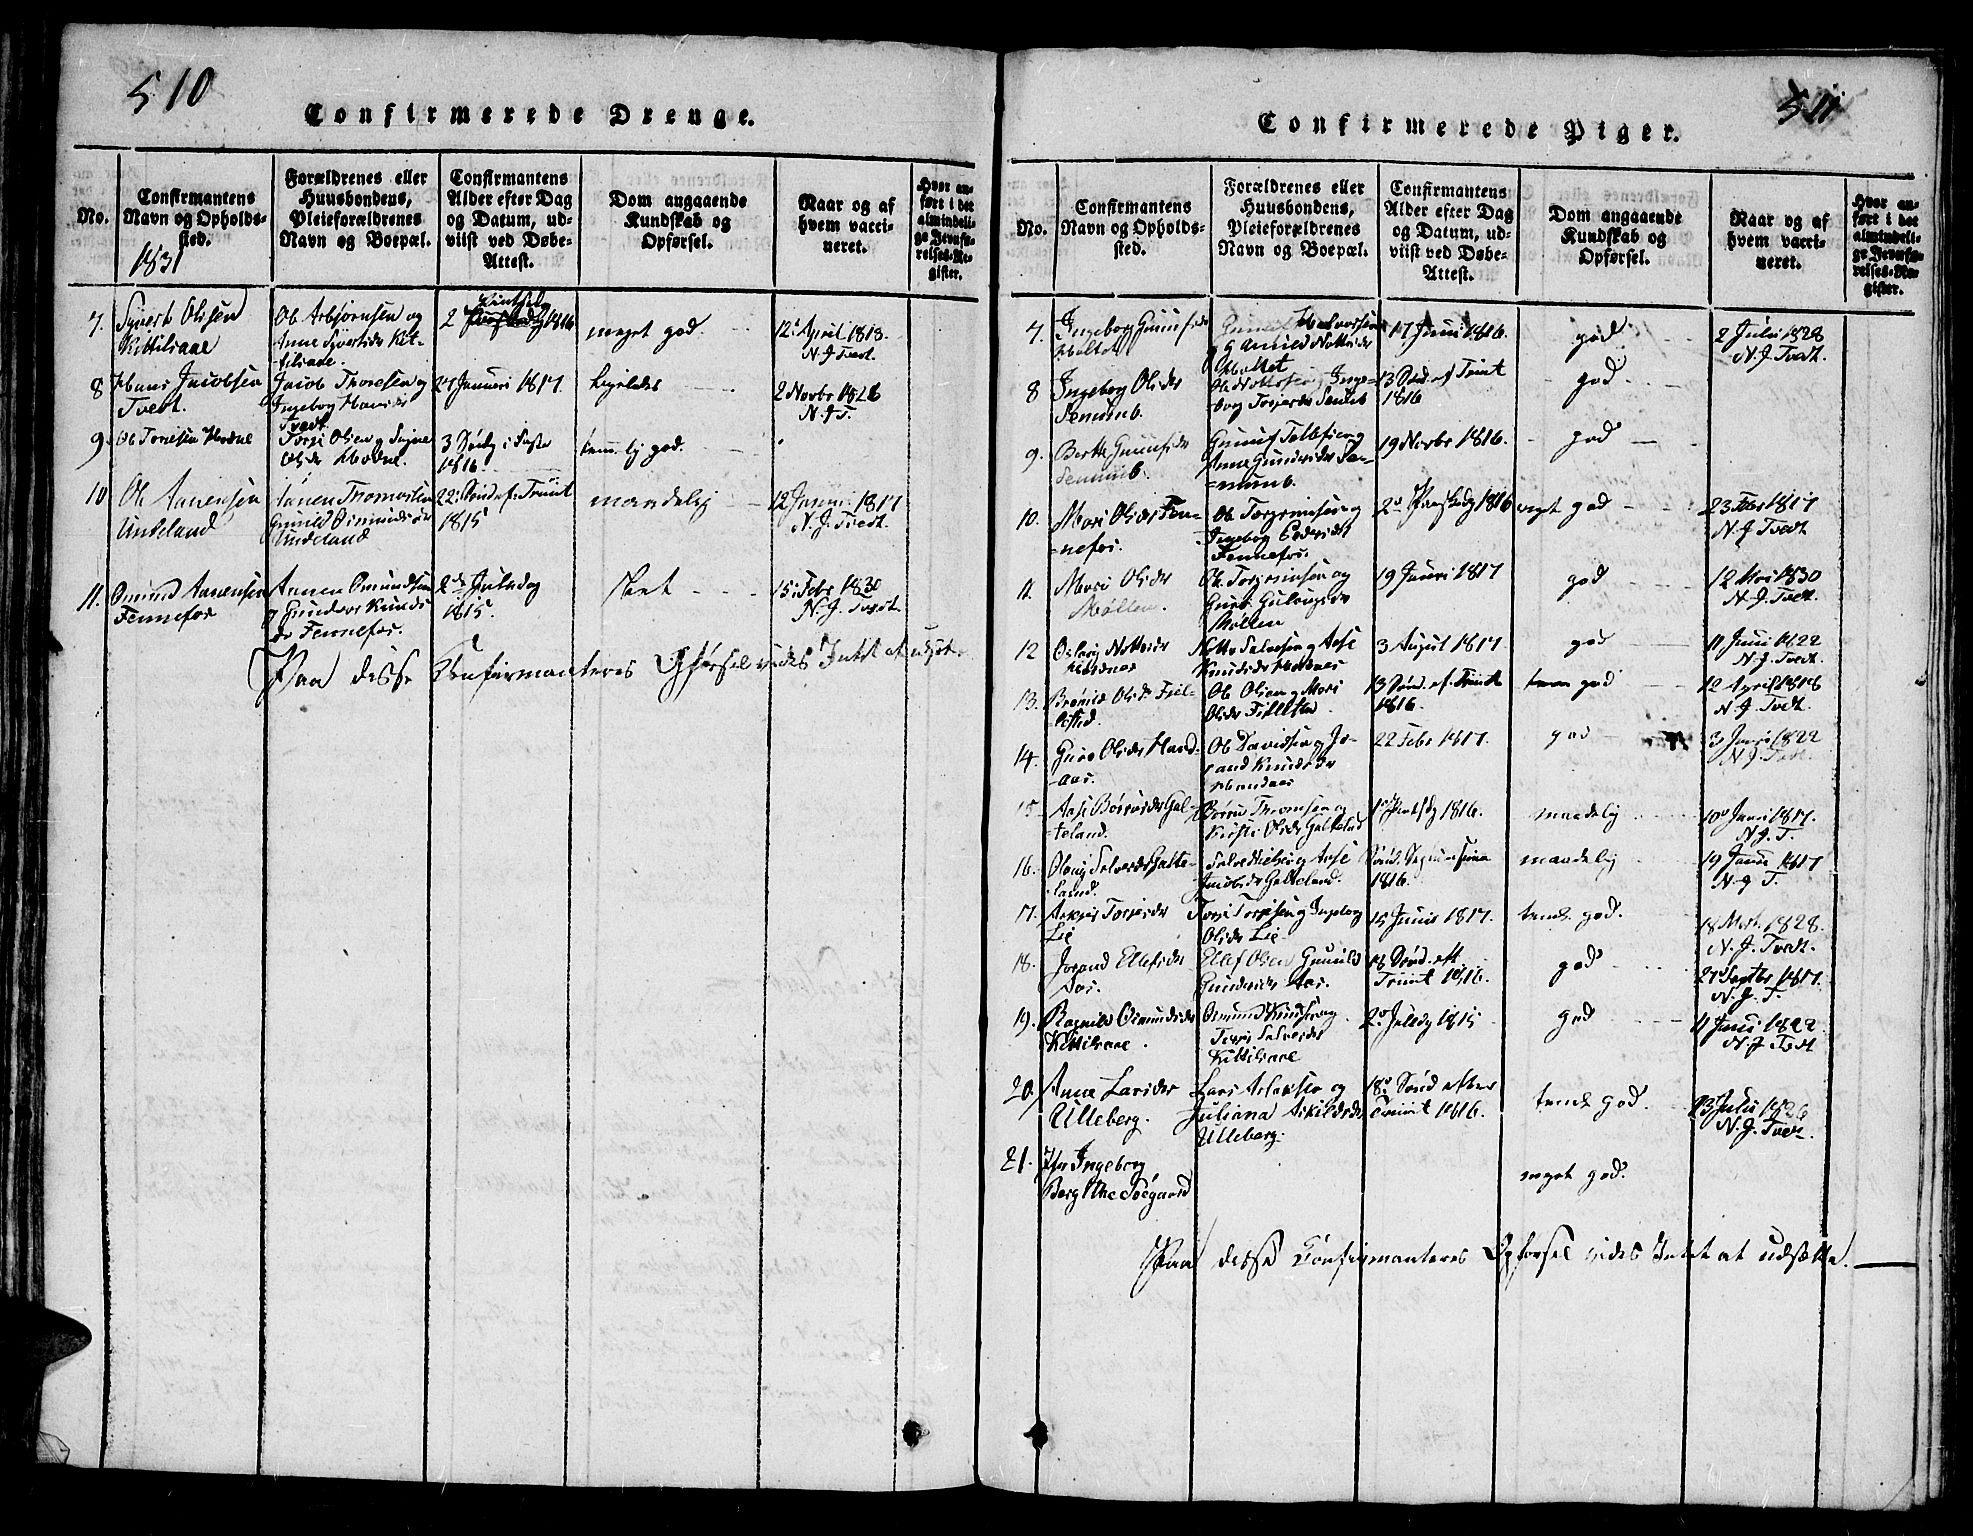 510
Confirmerede Drenge.
No.
Confirmantens
Navn og Opholds-
sted.
1831
Forældrenes eller
Huusbondens,
Pleieforældrenes
Navn og Boepæl.
Confirmantens
Alder efter Dag
og Datum, ud-
viist ved Døbe-
Attest.
Dom angaaende
Kundskab og
Opførsel.
Naar og af
hvem vacci-
neret.
Hvor an-
ført i det
almindeli-
ge Jevnfø-
relses-Re-
gister.
7.
Syvert Olisen
Kittilsaae
Ole Asbjørnsen og
Anne Syvertsdr Kit-
tilsaae.
2 1816
meget god.
12t April 1818.
N. J. Tvedt.
8
Hans Jacobsen
Tvedt.
Jacob Thoresen og
Ingeborg
Tvedt
27 Januari 1817.
Ligeledes
2 Novbr 1826
N. J. T.
9.
Ole Torjesen Hodne
Torje Olsen og Signe
Olsdr Hodne.
3 Søndg i Faste
1816
teml. god.
10
Ole Aanensen
Unkeland
Aanen Thomassen
Gunild Osmundsdr
Unkeland
22: Sønd ef: Trinit
1815
maadelig
12 1817
N. J. Tvedt.
11.
Omund Aanensen
Fennefos
Aanen Omundsen
og Gunder Knuds
dr Fennefos.
2den Juledag
1815.
slet
15 Febr 1830
N. J. Tvedt.
Paa disse Confirmanteres Opførsel vides Intet at udsæte.
511
Confirmerede Piger.
No.
Confirmantens
Navn og Opholds-
sted.
Forældrenes eller
Huusbondens,
Pleieforældrenes
Navn og Boepæl.
Confirmantens
Alder efter Dag
og Datum, ud-
viist ved Døbe-
Attest.
Dom angaaende
Kundskab og
Opførsel.
Naar og af
hvem vacci-
neret.
Hvor an-
ført i det
almindeli-
ge Jevnfø-
relses-Re-
gister.
7.
Ingeborg Gunufsdr
Moltet
Halvorsen
og Gunild Nottesdr
Moltet
17 Junii 1816.
god.
2 Julii 1828
N. J. Tvedt.
8
Ingeborg Olsdr
Senumb.
Ole og Inge-
borg Torjersdr Senumb
13 Sønd. ef Trinit
1816
god.
9.
Berthe Gunufsdr
Senumb.
Gunuf Tollefsen og
Anne Gundersdr Se-
=numb.
19 Novbr 1816.
god
10.
Mari Olsdr Fen-
=nefos.
Ole Torgrimsen og
Ingeborg
Fennefos.
2den 1816
meget god
23 Febr 1817
N. J. Tvedt
11.
Mari Olsdr
Mølten.
Ole Torgrimsen og
Guro
Mølten
19 Januri 1817
god
12 Mai 1830
N. J. Tvedt.
12
Oslaug Nottesdr
Notte Salvesen og Aase
Knudsdr
3 August 1817
god
11 Juni 1822
N. J. Tvedt.
13.
Olsdr Fjel-
lested.
Ole Olsen og Mari
Olsdr
13 Sønd. ef. Trinit
1816.
god
12 April 1818
N. J. Tvedt.
14.
Guro Olsdr Hand-
-aas.
Ole Davidsen og Jo-
rand Knudsdr
Handaas
22 Febr 1817.
god
3 1822
N. J. Tvedt.
15
Aase Børresdr Gal-
-teland.
Børre Thomsen og
Kirsti Olsdr Galteland
1ste 1816.
maadelig
10de Junii 1817.
N. J. T.
16.
Olaug Salvesdr Galte-
land.
og Aase
Jacobsdr Galteland.
Sønd. Septuagesima
1816.
maadelig
19 Junii 1817
N. J. T.
17.
Torjesdr
Lie
Torje Torjesen og Ingeborg
Olsdr Lie
15 Junii 1817.
teml. god.
18 Marti 1828.
N. J. Tvedt.
18.
Jorand Ellefsdr
Aas.
Ellef Olsen Gunuld
Gundersdr Aas.
18 Sønd. eft
Trinit 1816.
god
21 Septbr 1817.
N. J. T.
19.
Ragnild Osmundsdr
Kittilsaae.
Osmund Knudsen og
Torjer Salvesdr
Kittilsaae
2den Juledg 1815
god
11 Juni 1822.
N. J. Tvedt
20.
Anne Larsdr
Ulleberg.
Lars Aslaksen og
Juliana Askildsdr
Ulleberg.
18de Sønd efter
Trinit 1816.
teml. god.
23 Julii 1826
N. J. Tvedt.
21.
Ingeborg
Berg Soegaard
meget god.
Paa disse Confirmanteres Opførsel vides Intet at udsætte.